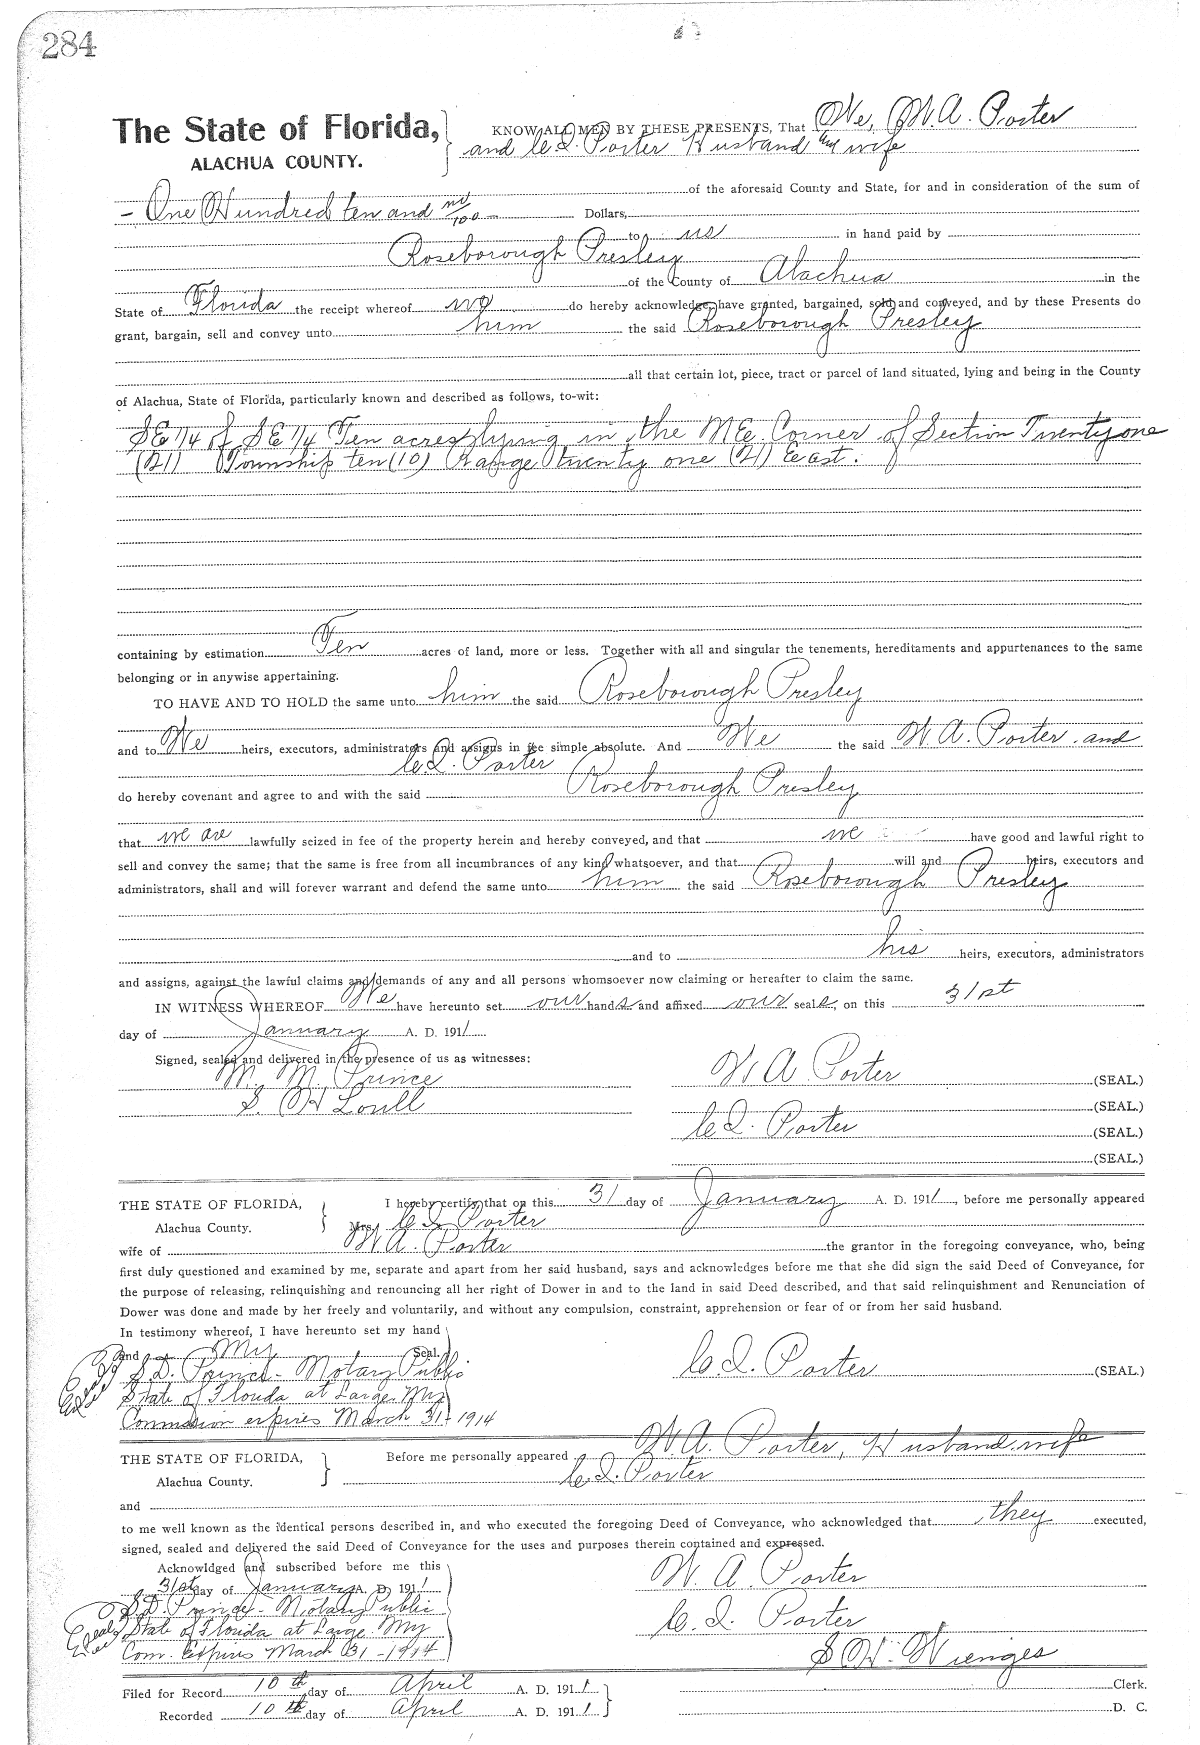 284
The State of Florida, KNOW ALL MEN BY THESE PRESENTS, That We, W. A. Porter
ALACHUA COUNTY. and C. I. Porter Husband and wife
of the aforesaid County and State, for and in consideration of the sum of
- One Hundred ten and no/100 - Dollars,
to us in hand paid by
Roseborough Presley
of the County of Alachua in the
State of Florida the receipt whereof we do hereby acknowledge, have granted, bargained, sold and conveyed, and by these Presents do
grant, bargain, sell and convey unto him the said Roseborough Presley
all that certain lot, piece, tract or parcel of land situated, lying and being in the County
of Alachua, State of Florida, particularly known and described as follows, to-wit:
SE 1/4 of SE 1/4 Ten acres lying in the NE Corner of Section Twenty one
(21) Township ten (10) Range twenty one (21) East.
containing by estimation Ten acres of land, more or less. Together with all and singular the tenements, hereditaments and appurtenances to the same
belonging or in anywise appertaining.
TO HAVE AND TO HOLD the same unto him the said Roseborough Presley
and to We heirs, executors, administrators and assigns in fee simple absolute. And We the said W. A. Porter and
C. I. Porter
do hereby covenant and agree to and with the said Roseborough Presley
that we are lawfully seized in fee of the property herein and hereby conveyed, and that we have good and lawful right to
sell and convey the same; that the same is free from all incumbrances of any kind whatsoever, and that will and heirs, executors and
administrators, shall and will forever warrant and defend the same unto him the said Roseborough Presley
and to his heirs, executors, administrators
and assigns, against the lawful claims and demands of any and all persons whomsoever now claiming or hereafter to claim the same.
IN WITNESS WHEREOF We have hereunto set our hands and affixed our seals, on this 31st
day of January A. D. 1911
Signed, sealed and delivered in the presence of us as witnesses:
M. M. Prince W. A Porter (SEAL.)
S. H (SEAL.)
C. I. Porter (SEAL.)
(SEAL.)
THE STATE OF FLORIDA, I hereby certify that on this 31 day of January A. D. 1911, before me personally appeared
Alachua County. Mrs. C. I. Porter
wife of W. A. Porter the grantor in the foregoing conveyance, who, being
first duly questioned and examined by me, separate and apart from her said husband, says and acknowledges before me that she did sign the said Deed of Conveyance, for
the purpose of releasing, relinquishing and renouncing all her right of Dower in and to the land in said Deed described, and that said relinquishment and Renunciation of
Dower was done and made by her freely and voluntarily, and without any compulsion, constraint, apprehension or fear of or from her said husband.
In testimony whereof, I have hereunto set my hand
and My Seal.
S. D. Prince - Notary Public C. I. Porter (SEAL.)
State of Florida at Large. My
Commission expires March 31 - 1914
THE STATE OF FLORIDA, Before me personally appeared W. A. Porter, Husband. wife
Alachua County. C. I. Porter
and
to me well known as the identical persons described in, and who executed the foregoing Deed of Conveyance, who acknowledged that they executed,
signed, sealed and delivered the said Deed of Conveyance for the uses and purposes therein contained and expressed.
Acknowldged and subscribed before me this W. A. Porter
31st day of January A. D. 1911
S. D. Prince - Notary Public C. I. Porter
State of Florida at Large. My
Com. Expires March 31 - 1914 S H. Wienges
Filed for Record 10th day of April A. D. 1911 Clerk.
Recorded 10th day of April A. D. 1911 D. C.